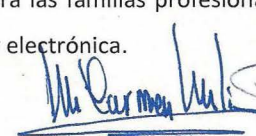 ra las familias profesiona
electrónica.
Mª Carmen